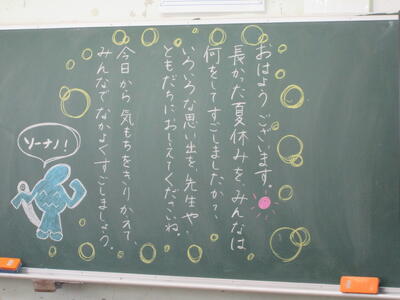 おはよう ございます。
長かった夏休みを、みんなは
何をしてすごしましたか？
いろいろな思い出を、先生や、
ともだちにおしえてくださいね。
今日から 気もちをきりかえて、
みんなで なかよくすごしましょう。
ソーナノ！